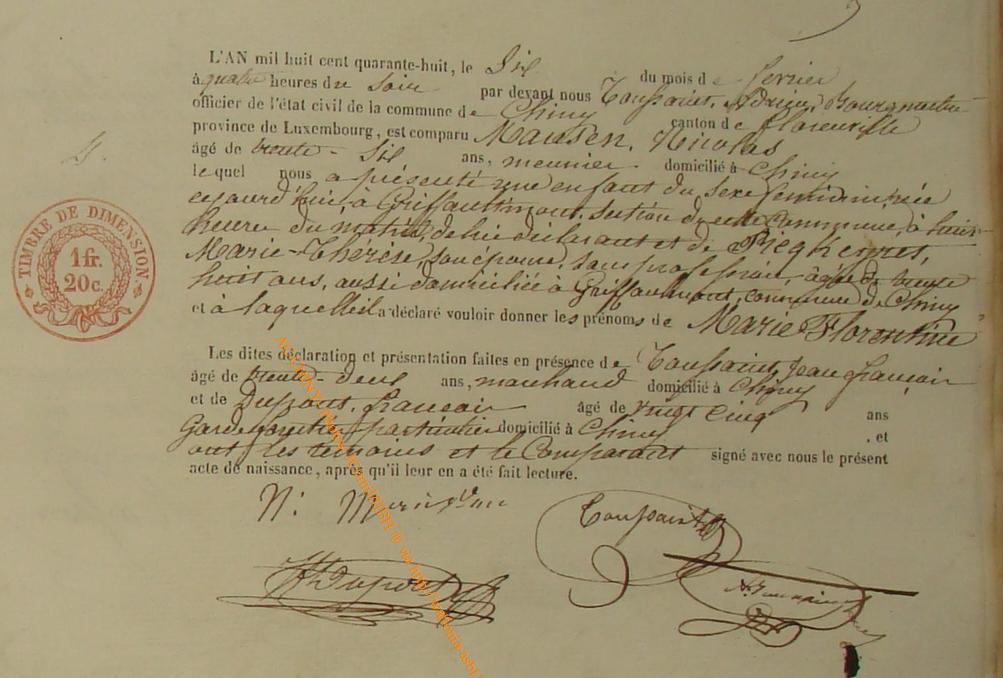 L'AN mil huit cent quarante-huit, le Six du mois de fevrier
à quatre heures du Soir par devant nous Toussaint, Adrien, Bourgmestre
officier de l'état civil de la commune de Chiny canton de florenville
province de Luxembourg, est comparu Mausen, Nicolas
4.
âgé de trente-Six ans, meunier domicilié à Chiny
lequel nous a présenté une enfant du sexe feminin née
cejourd'hui, à Griffaumont, section de cette Commune, à huit
heures du matin, de lui déclarant et de
Marie-Thérèse, son épouse, sans profession, âgée de trente
huit ans, aussi domiciliée à Griffaumont, commune de Chiny
et à laquelle il a déclaré vouloir donner les prénoms de Marie Florentine
TIMBRE DE DIMENSION
1 fr.
20 c.
Les dites déclaration et présentation faites en présence de Toussaint, Jean françois
âgé de trente-deux ans, marchand domicilié à Chiny
et de Dupont, françois âgé de vingt cinq ans
Garde forestier particulier domicilié à Chiny , et
ont, les temoins et le Comparant signé avec nous le présent
acte de naissance, après qu'il leur en a été fait lecture.
N:
Toussaint
Dupont